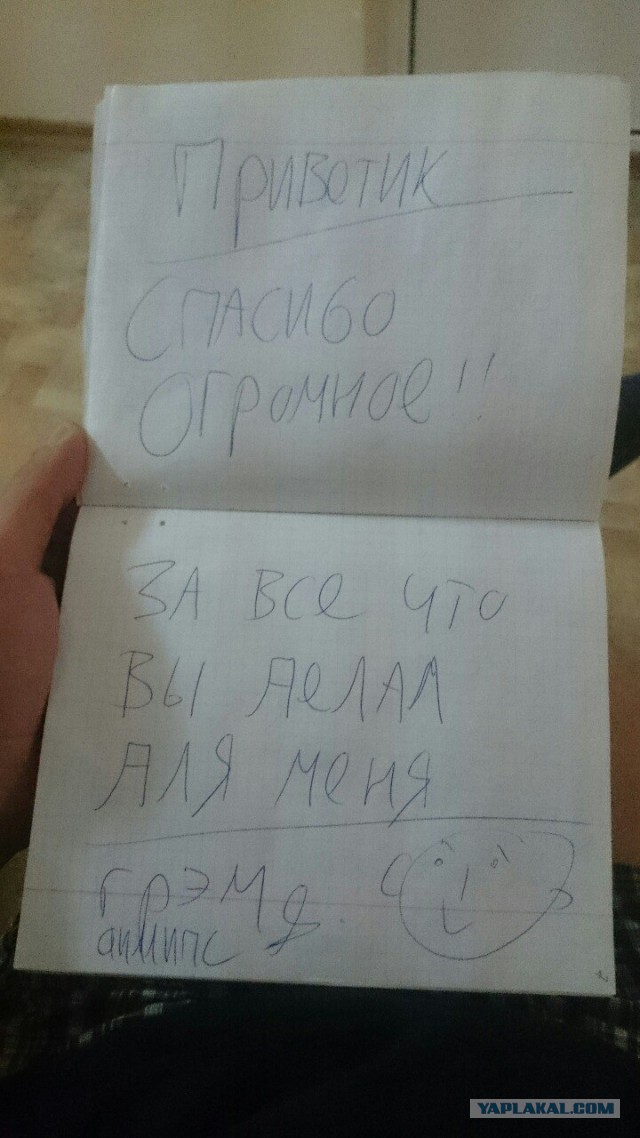 Привотик
Спасибо
Огромное!!
ЗА ВСЕ ЧТО
ВЫ ДЕЛАЛ
ДЛЯ МЕНЯ
грэм
YAPLAKAL.COM